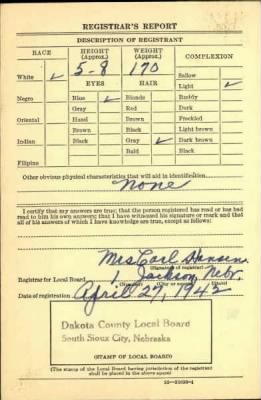 REGISTRAR'S REPORT
DESCRIPTION OF REGISTRANT
RACE HEIGHT (Approx.) WEIGHT (Approx.) COMPLEXION
5-8 170
White ✓ EYES HAIR Sallow
Light ✓
Negro Blue ✓ Blonde Ruddy
Gray Red Dark
Oriental Hazel Brown Freckled
Brown Black Light brown
Indian Black Gray ✓ Dark brown
Bald Black
Filipino
Other obvious physical characteristics that will aid in identification
None
I certify that my answers are true; that the person registered has read or has had
read to him his own answers; that I have witnessed his signature or mark and that
all of his answers of which I have knowledge are true, except as follows:
Mrs Carl Hansen
(Signature of registrar)
Registrar for Local Board 1 Jackson, Nebr.
Date of registration April 27, 1942
Dakota County Local Board
South Sioux City, Nebraska
(STAMP OF LOCAL BOARD)
(The stamp of the Local Board having jurisdiction of the registrant
shall be placed in the above space)